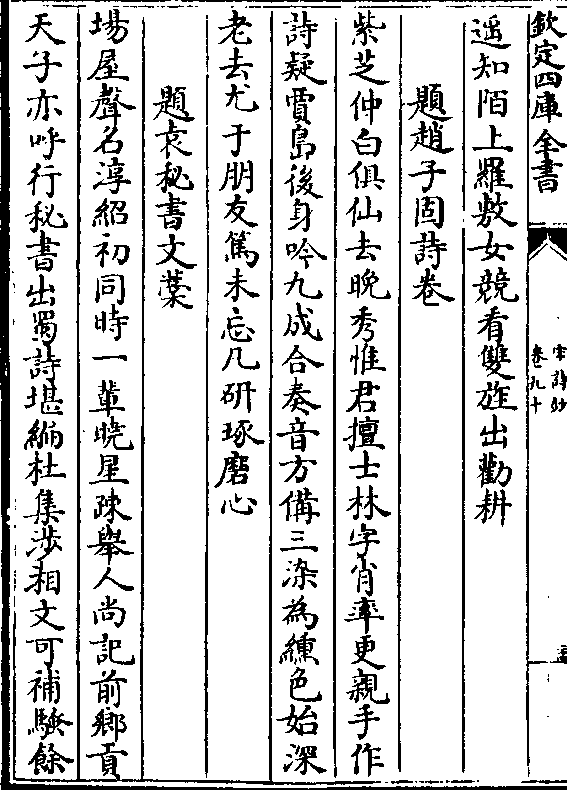 欽定四庫全書
宋詩鈔
卷九十
遥知陌上羅敷女競看雙旌出勸耕
題趙子固詩卷
紫芝仲白俱仙去晚秀惟君擅士林字肖率更親手作
詩疑賈島後身吟九成合奏音方備三染為纁色始深
老去尤于朋友篤未忘几研琢磨心
題袁秘書文藁
場屋聲名淳紹初同時一輩曉星疎舉人尚記前鄉貢
天子亦呼行秘書出蜀詩堪編杜集涉湘文可補騷餘